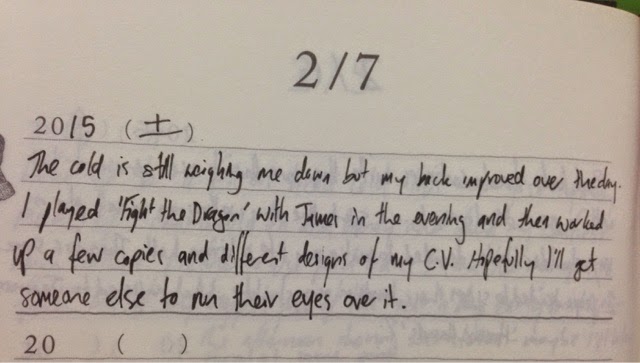 2/7
2015 (土)
The cold is still weighing me down but my back improved over the day.
I played 'Fight the Dragon' with James in the evening and then worked
up a few copies and different designs of my C.V. Hopefully I'll get
someone else to run their eyes over it.
20 ( )